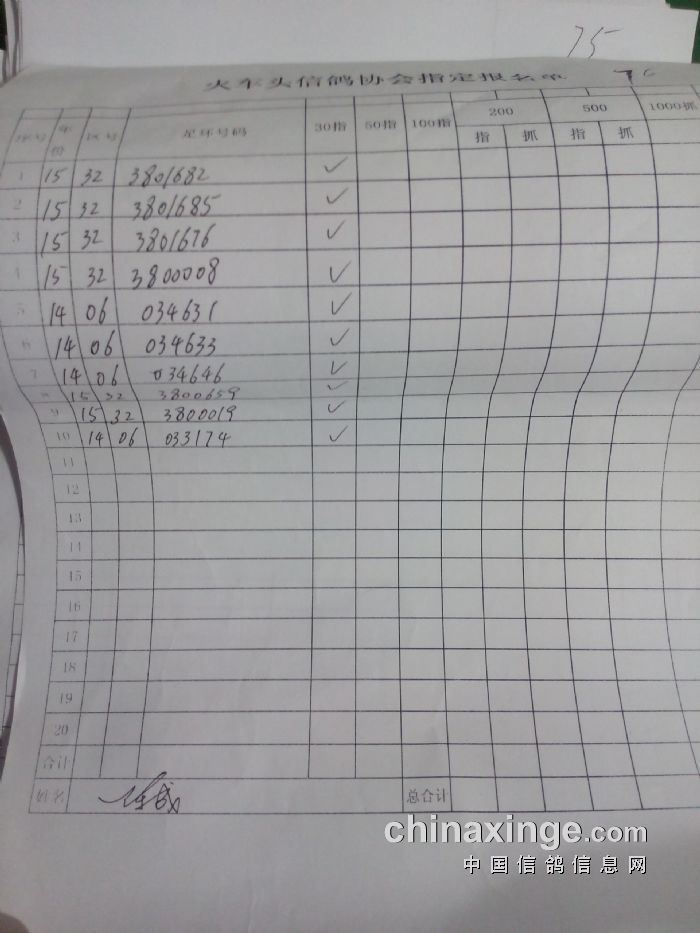 75
火车头信鸽协会指定报名单
序号 年份 区号 足环号码 30指 50指 100指 200 500 1000抓
指 抓 指 抓
1 15 32 3801682 ✓
2 15 32 3801685 ✓
3 15 32 3801676 ✓
4 15 32 3800008 ✓
5 14 06 034631 ✓
6 14 06 034633 ✓
7 14 06 034646 ✓
8 15 32 3800659 ✓
9 15 32 3800019 ✓
10 14 06 033174 ✓
11
12
13
14
15
16
17
18
19
20
合计
姓名 总合计
chinaxinge.com
中国信鸽信息网